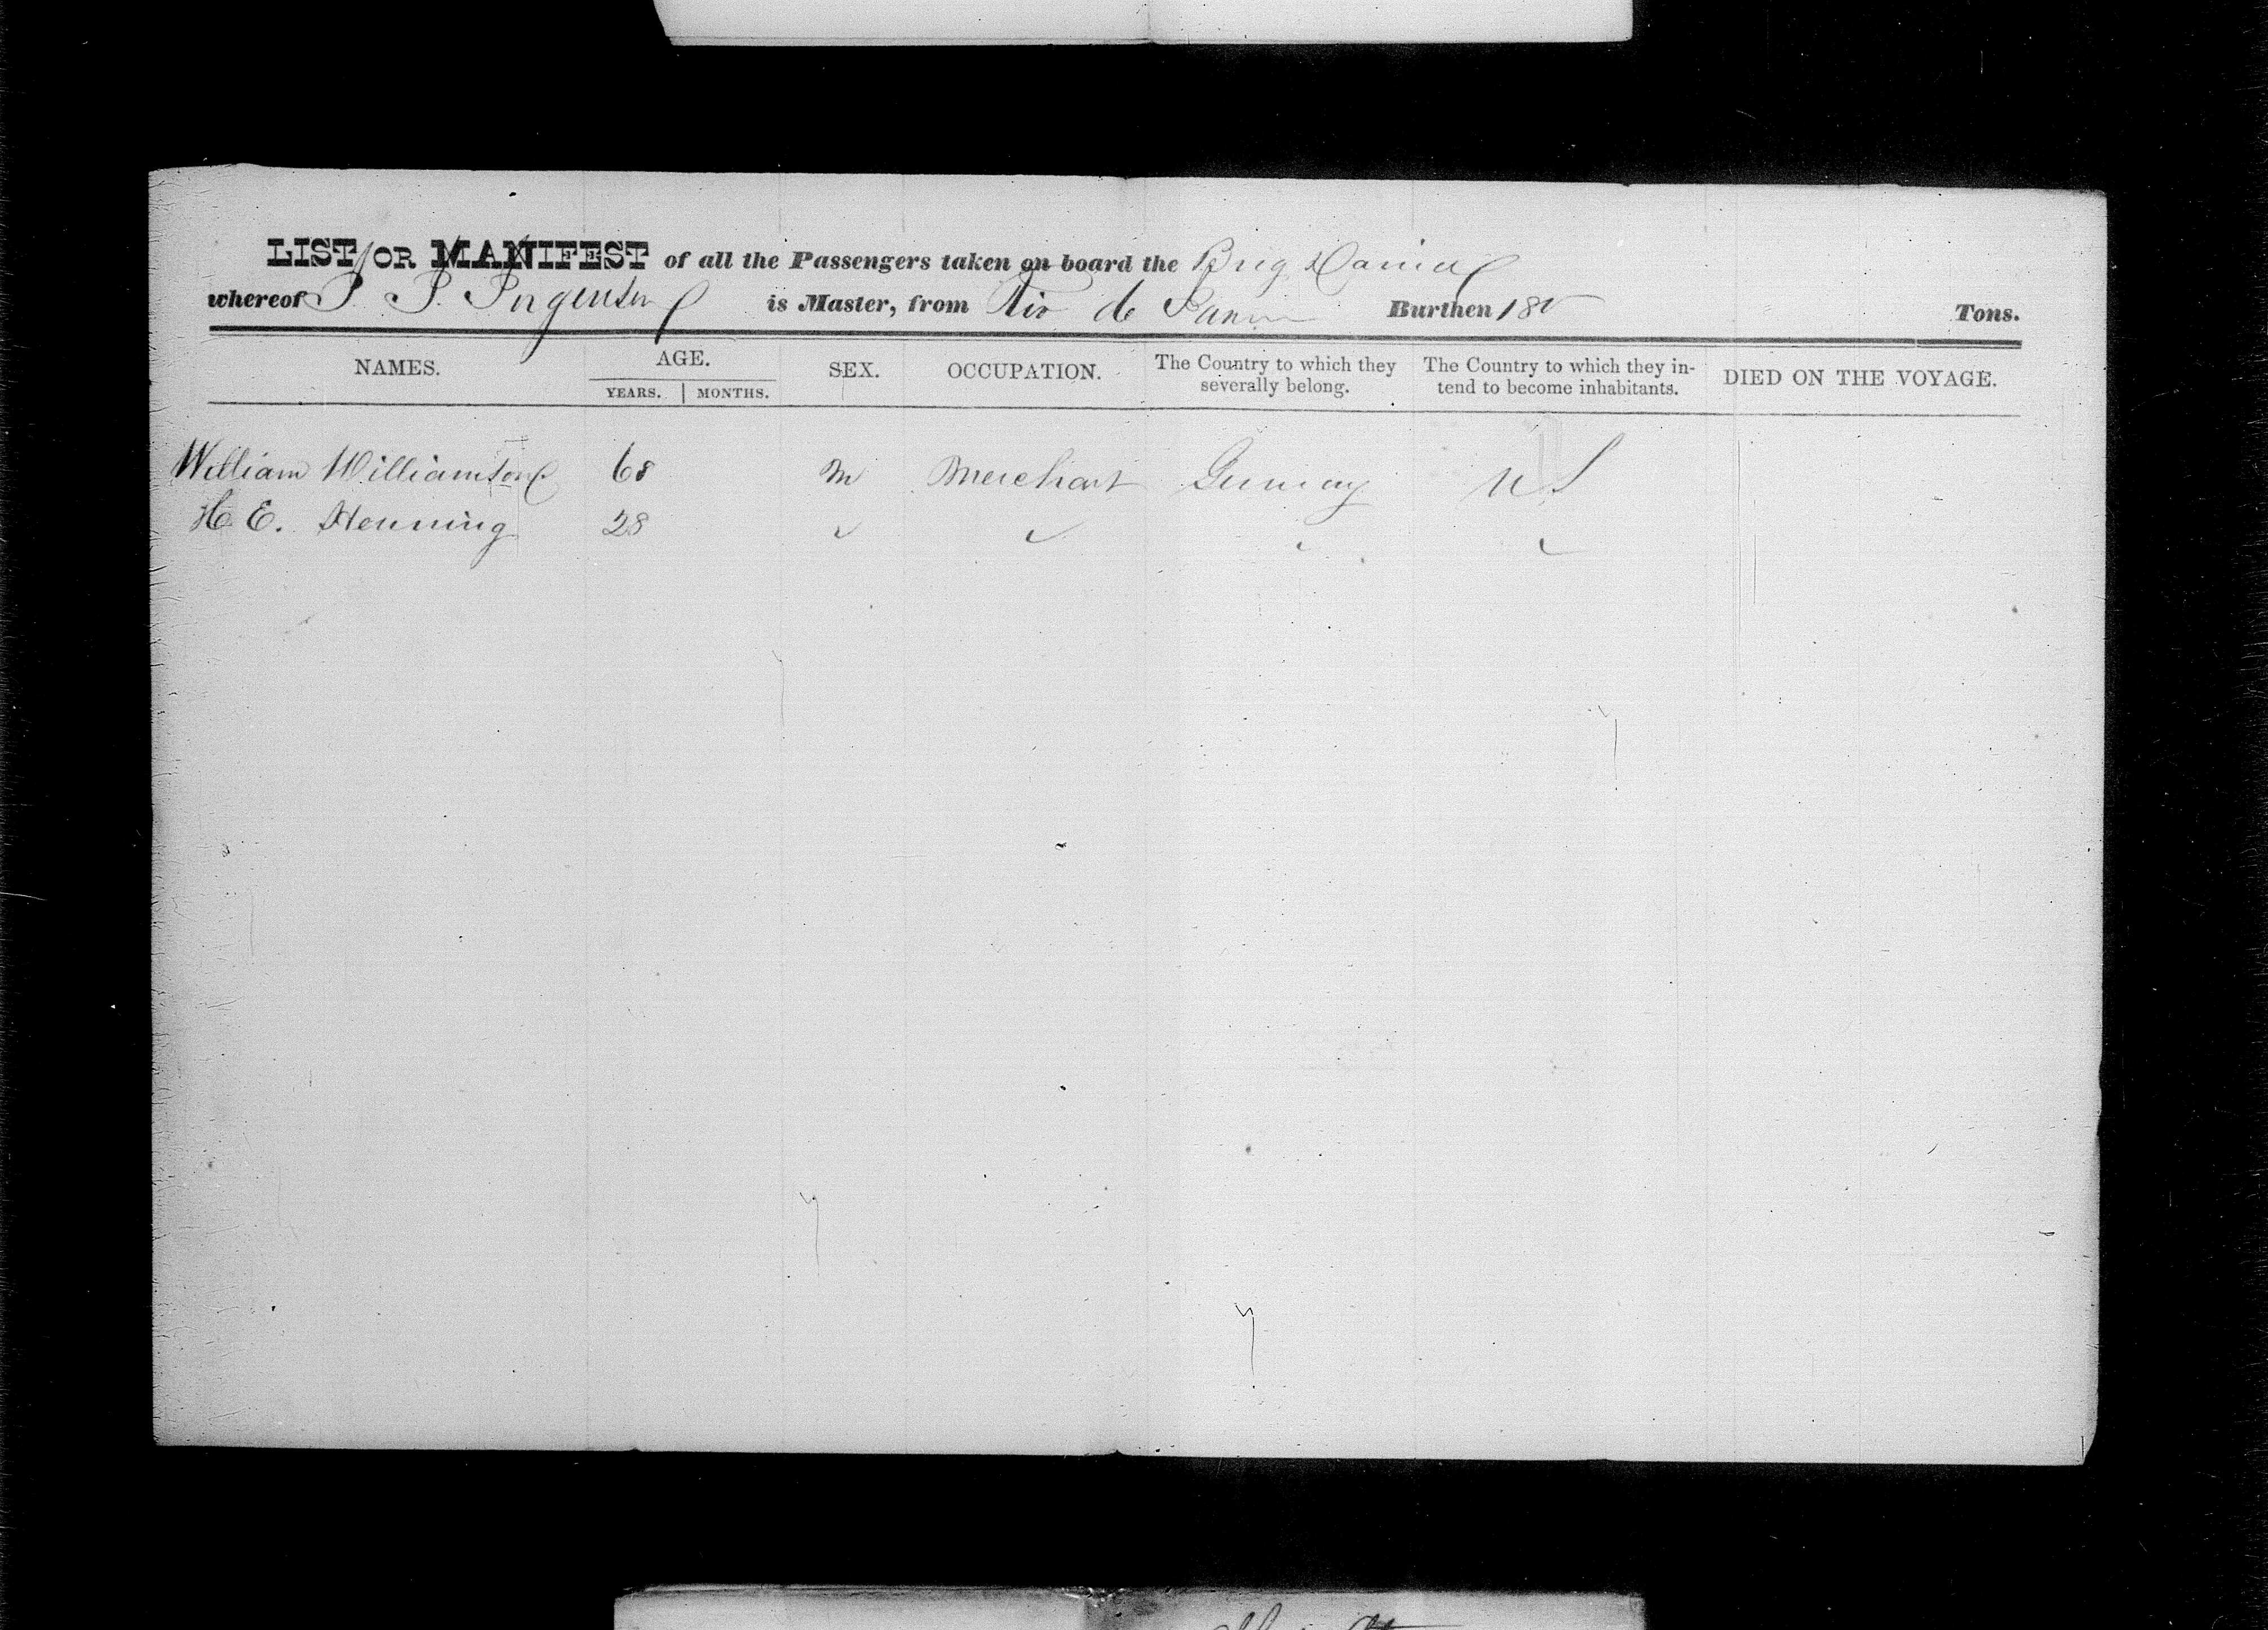 LIST OR MANIFEST of all the Passengers taken on board the Brig Daniel
whereof P. P. Jrgensen is Master, from Rio de Burthen 180 Tons.
NAMES. AGE. SEX. OCCUPATION. The Country to which they severally belong. The Country to which they in-tend to become inhabitants. DIED ON THE VOYAGE.
YEARS. MONTHS.
William Williamson 68 m Merchant Germany US
H. E. Henning 28 ✓ ✓ ✓ ✓